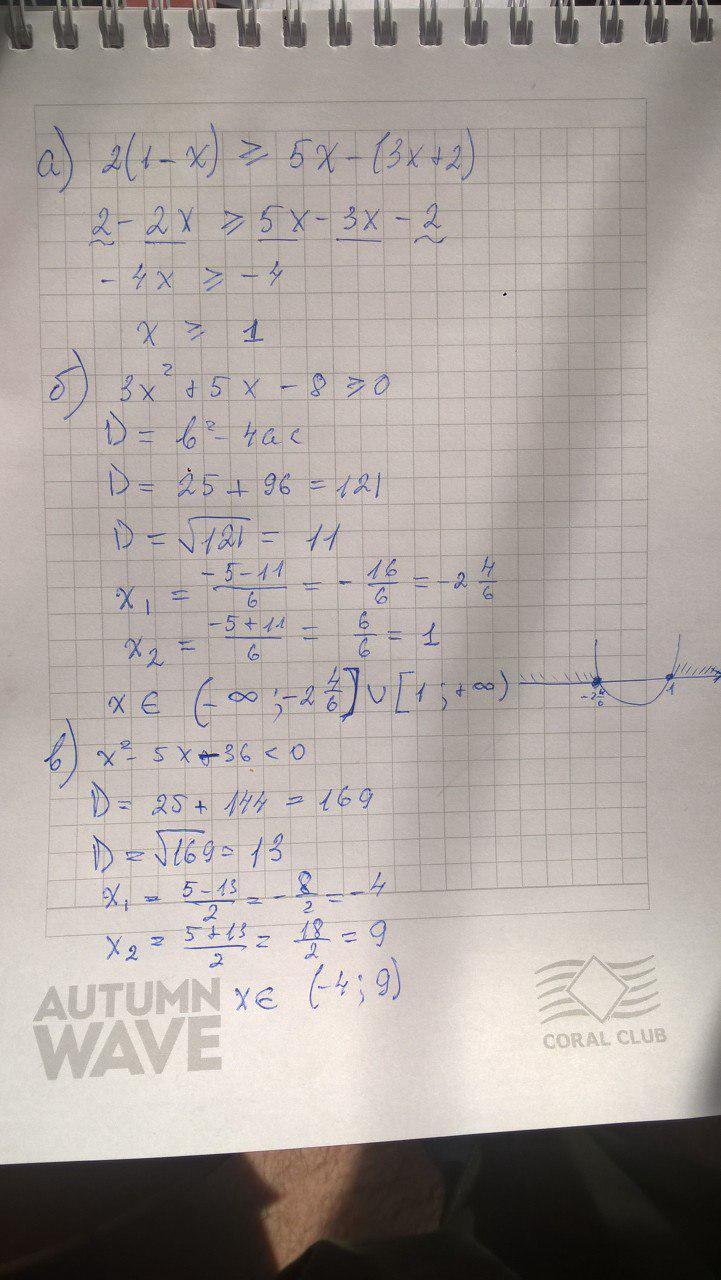 а) 2(1-x) ≥ 5x-(3x+2)
2-2x ≥ 5x-3x-2
-4x ≥ -4
x ≥ 1
б) 3x²+5x-8≥0
D = b²-4ac
D = 25+96=121
D = √121 = 11
x₁ = (-5-11)/6 = -16/6 = -2 4/6
x₂ = (-5+11)/6 = 6/6 = 1
x ∈ (-∞;-2 4/6]∪[1;+∞)
-2 4/6 1
в) x²-5x-36<0
D = 25+144=169
D = √169=13
x₁ = (5-13)/2 = -8/2 = -4
x₂ = (5+13)/2 = 18/2 = 9
x∈ (-4;9)
AUTUMN
WAVE
CORAL CLUB